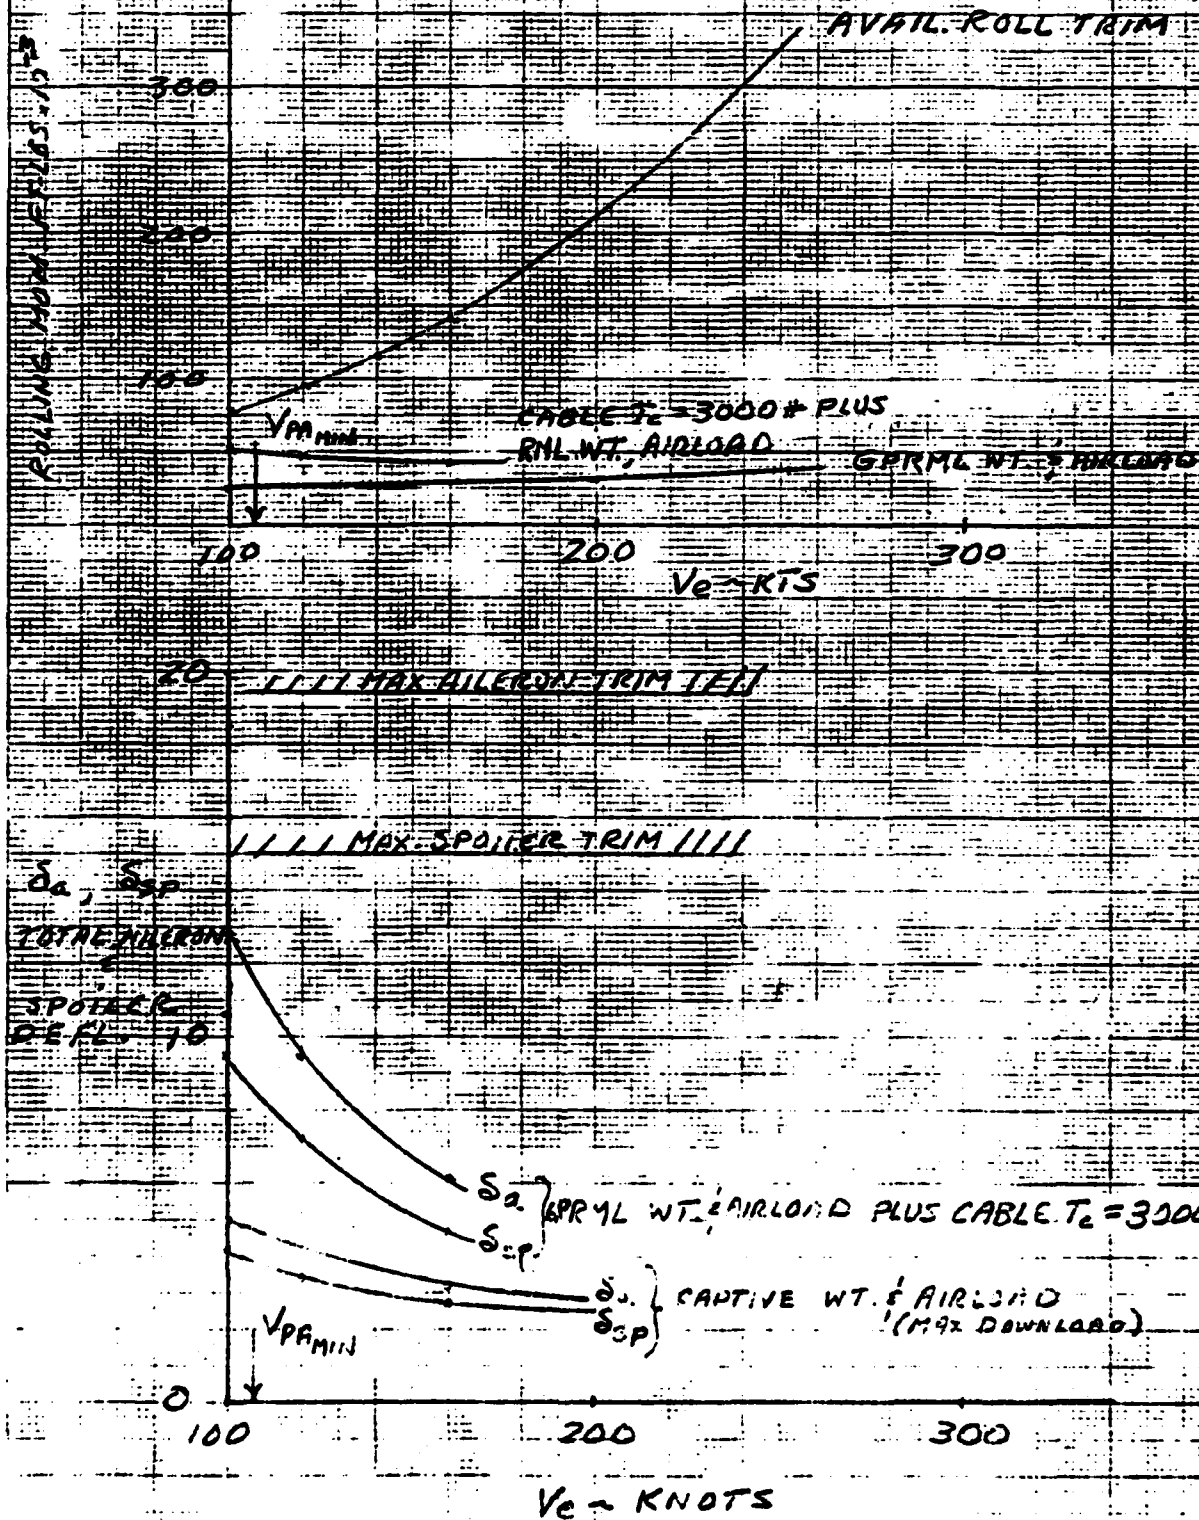 AVAIL. ROLL TRIM
ROLLING MOM. FT. LBS. x 10⁻³
300
200
100
V_PA MIN
CABLE Tc = 3000 # PLUS
RML WT., AIRLOAD
GPRML WT. & AIRLOAD
100 200 300
Ve ~ KTS
20
//// MAX AILERON TRIM ////
//// MAX. SPOILER TRIM ////
δa, δSP
TOTAL AILERON
&
SPOILER
DEFL. 10
δa
GPRML WT. & AIRLOAD PLUS CABLE Tc = 3000
δsp
δa
CAPTIVE WT. & AIRLOAD
δSP
(MAX DOWNLOAD)
V_PA MIN
0
100 200 300
Ve ~ KNOTS